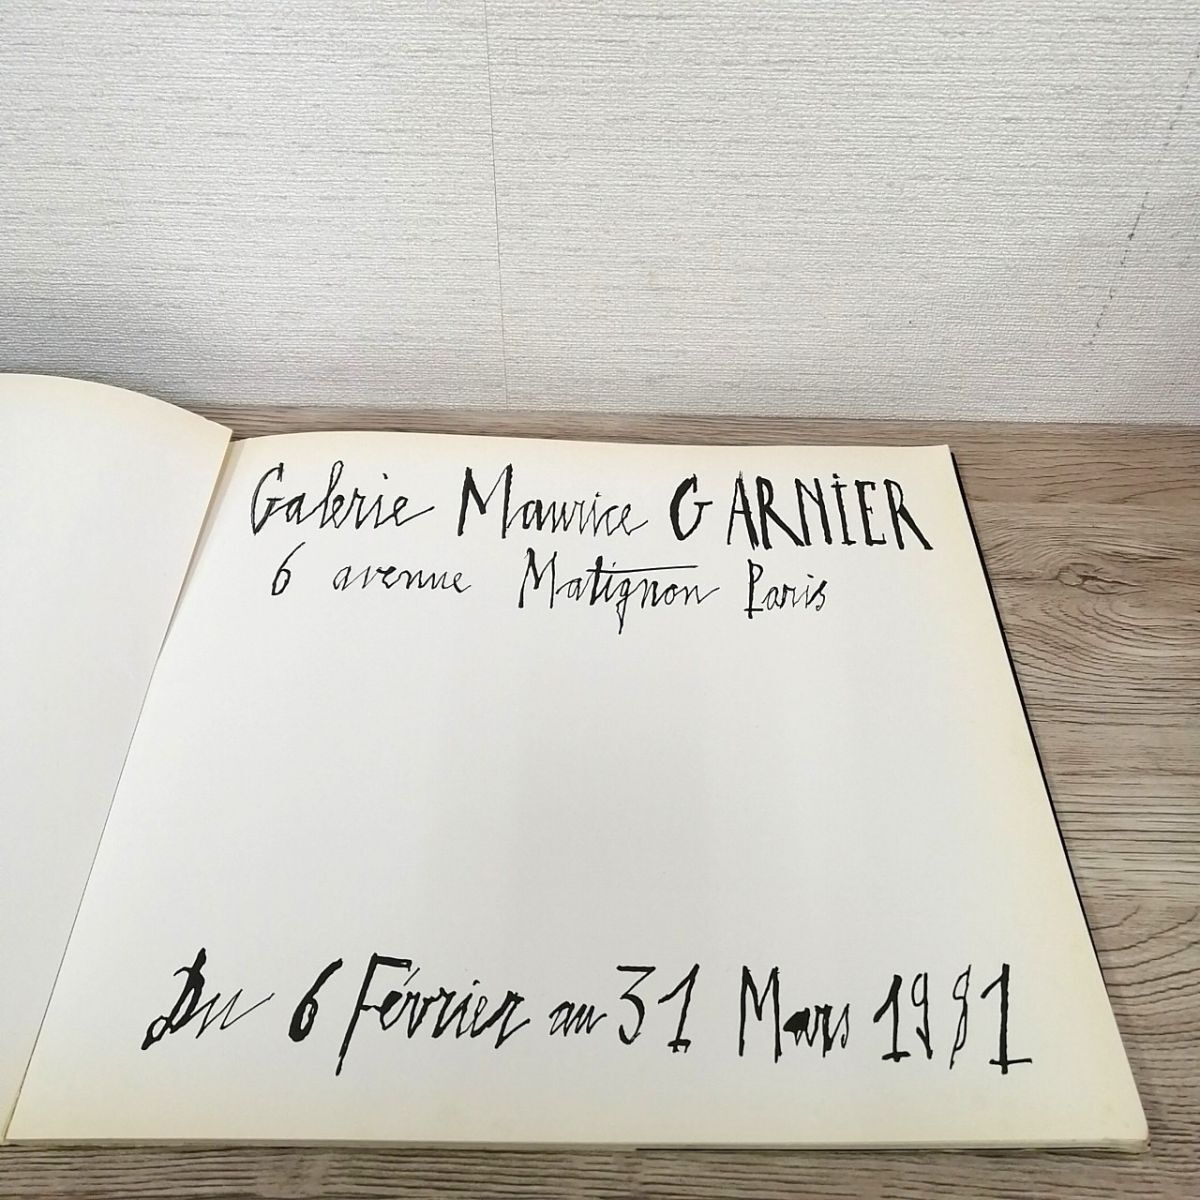 Galerie Maurice GARNiER
6 avenue Matignon Paris
Du 6 Février au 31 Mars 1981